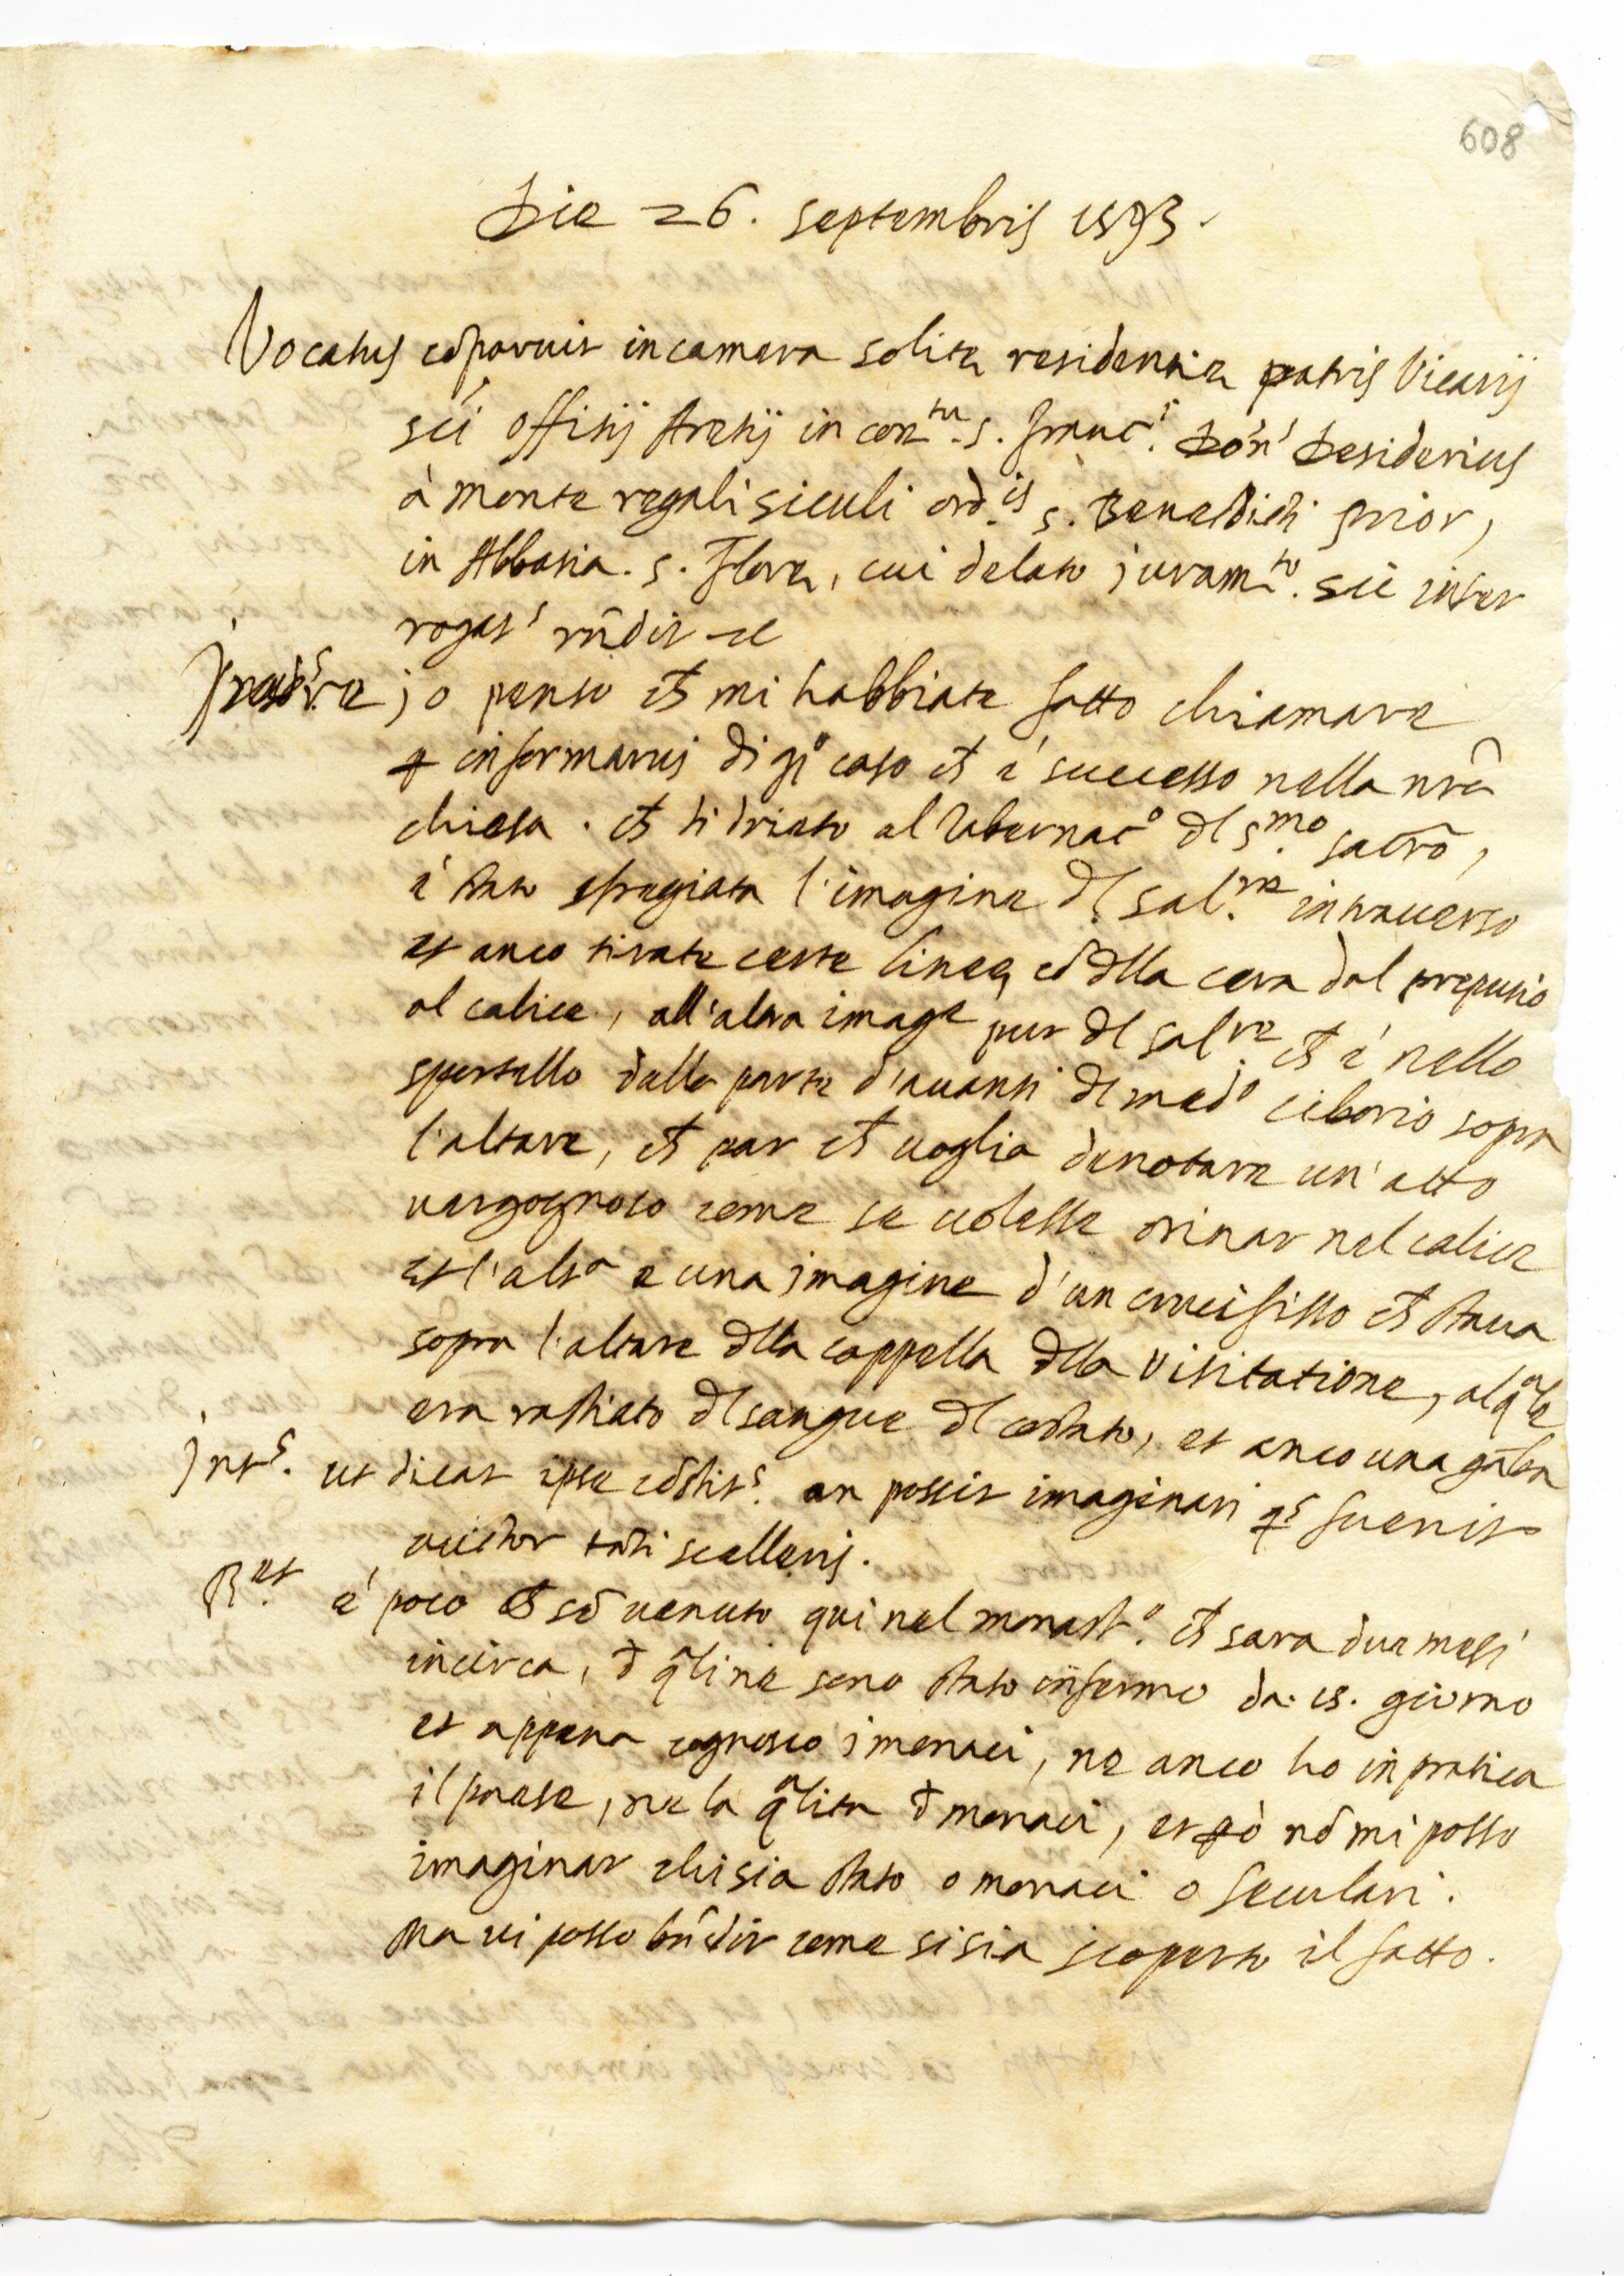 608
Die 26. septembris 1593.
Vocatus cõparuit in camera solitę residentię patris Vicarij
sci͂ offitij Aretij in con.tu s. Franc.i Don' Desiderius
à monte regali siculi ord.is s. Benedicti prior,
in Abbatia. s. Florę, cui delato juram.to sic inter
rogat' rñdit
jo penso ch̃ mi habbiate fatto chiamare
ꝑ informarvi di q̃o caso ch̃ é successo nella nrã
chiesa. ch̃ di drieto al tabernac.o dl s.mo sacrõ,
é stato sfregiata l'imagine dl sal.re in trauerso
et anco tirate certe lineę cõ dlla cera dal preputio
al calice, all'altra image pur dl sal.re ch̃ é nello
sportello dalla parte d'auanti dl med.o ciborio sopra
l'altare, ch̃ par ch̃ uoglia denotare un' atto
uergognoso come se uolesse orinar nel calice
et l'altra e una imagine d'un crucifisso ch̃ staua
sopra l'altare dlla cappella dlla visitatione, al q̃le
era rastiato dl sangue dl costato, et anco una gãba
jnt.s ut dicat ipse cõstit.s an possit imaginari q̃s fuerit
auctor tãti scelleris.
R.et é poco ch̃ sõ uenuto qui nel monast.o ch̃ sara due mesi
incirca, d q̃li ne sono stato infermo da. 15. giorno
et appena cognosco i monaci, ne anco ho in pratica
il paese, ne la q̃lita d monaci, et ꝑò nõ mi posso
imaginar chi sia stato o monaci o seculari.
Ma ui posso bñ dir come si sia scoperto il fatto.